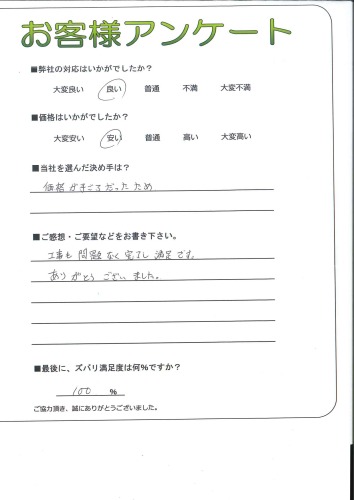 お客様アンケート
■弊社の対応はいかがでしたか?
大変良い 良い 普通 不満 大変不満
■価格はいかがでしたか?
大変安い 安い 普通 高い 大変高い
■当社を選んだ決め手は?
価格が手ごろだったため
■ご感想・ご要望などをお書き下さい。
工事も問題なく完了し満足です。
ありがとうございました。
■最後に、ズバリ満足度は何%ですか?
100 %
ご協力頂き、誠にありがとうございました。